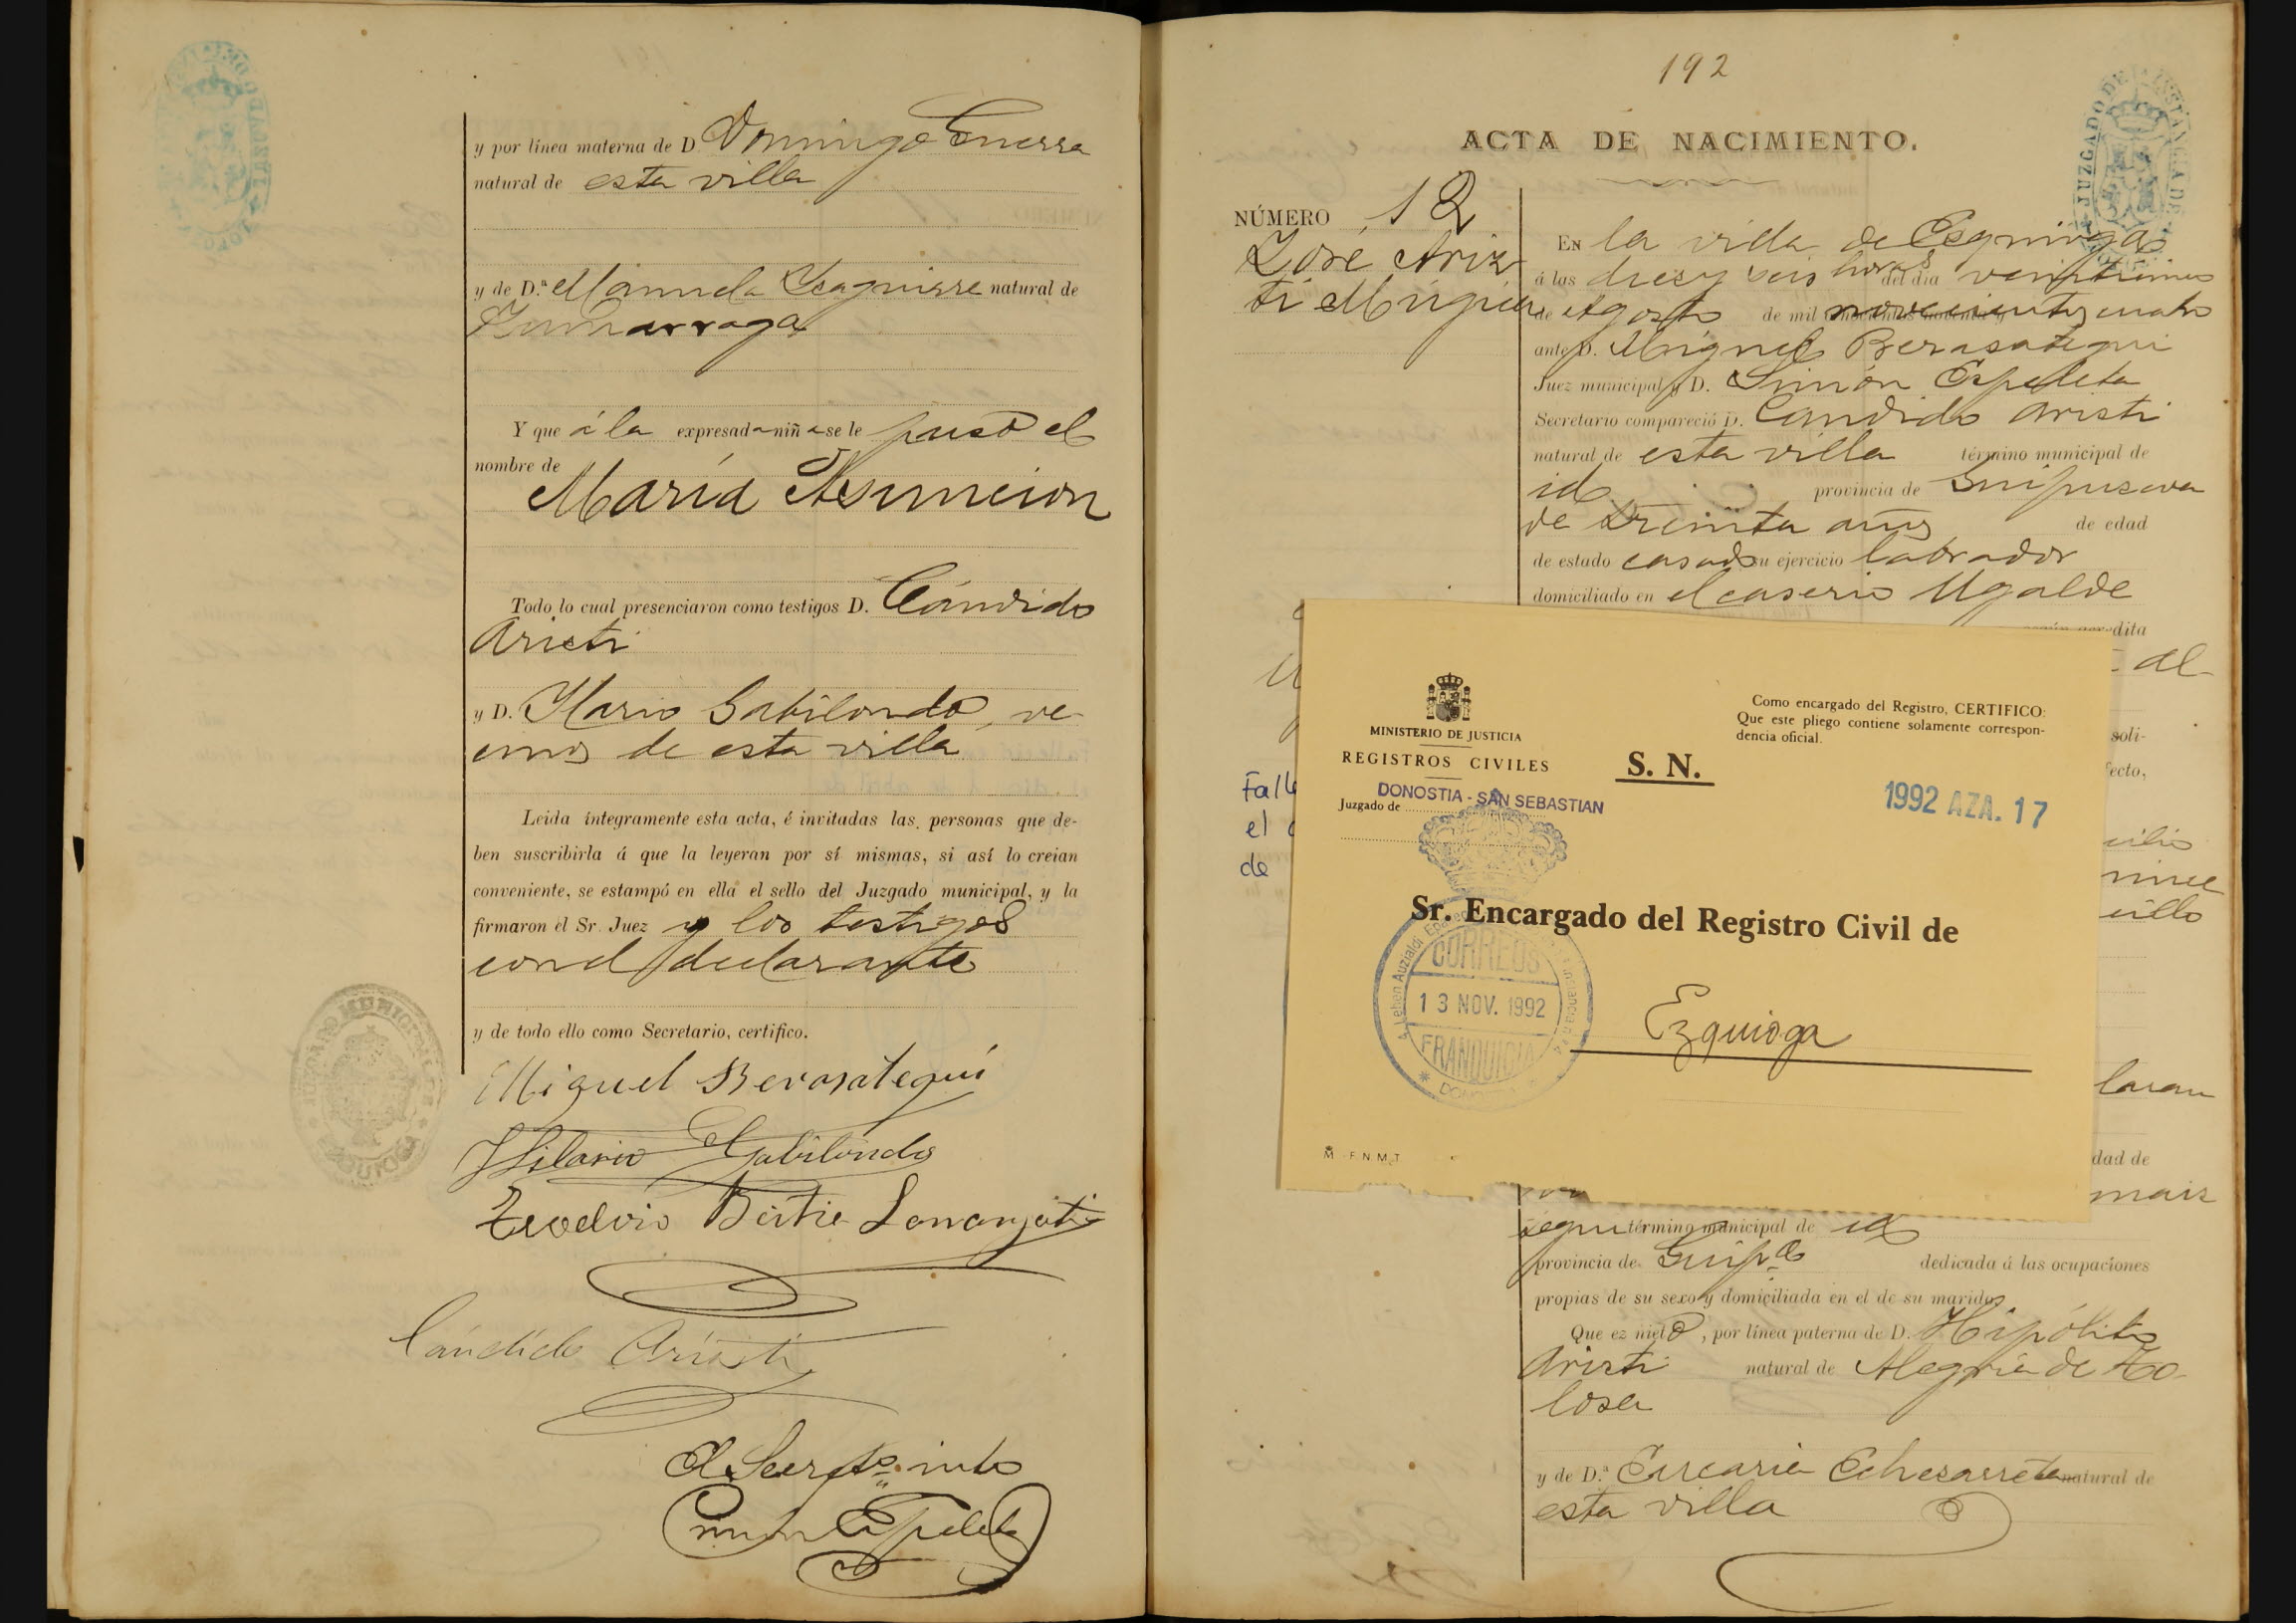 y por línea materna de D. Domingo Guerra
natural de esta villa
y de D.ª Manuela Ysaguirre natural de
Zumarraga
Y que á la expresada niña se le puso el
nombre de
María Asuncion
Todo lo cual presenciaron como testigos D. Cándido
Aristi
y D. Ylario Gabilondo, ve-
cinos de esta villa
Leida íntegramente esta acta, é invitadas las personas que de-
ben suscribirla á que la leyeran por sí mismas, si así lo creian
conveniente, se estampó en ella el sello del Juzgado municipal, y la
firmaron el Sr. Juez y los testigos
con el declarante
y de todo ello como Secretario, certifico.
Miguel Berasategui
Hilario Gabilondo
Teodoro
Cándido Aristi
El Secret.º
192
ACTA DE NACIMIENTO.
NÚMERO 12
José Aris-
ti Múgica
EN la villa de Esquioga
á las diez y seis horas del dia veintiuno
de Agosto de mil novecientos cuatro
ante D. Miguel Berasategui
Juez municipal y D. Simón Espeleta
Secretario compareció D. Candido Aristi
natural de esta villa término municipal de
id provincia de Guipuzcoa
de treinta años de edad
de estado casado su ejercicio labrador
domiciliado en el caserio Ugalde
según acredita
al
soli-
fecto,
Falle
el
de
MINISTERIO DE JUSTICIA
REGISTROS CIVILES
Juzgado de DONOSTIA - SAN SEBASTIAN
S. N.
Como encargado del Registro, CERTIFICO:
Que este pliego contiene solamente correspon-
dencia oficial.
1992 AZA. 17
Sr. Encargado del Registro Civil de
CORREOS
13 NOV. 1992
FRANQUICIA
Ezquioga
F.N.M.T.
cilio
cillo
laran
dad de
maiz
tegui término municipal de id
provincia de Guip.ª dedicada á las ocupaciones
propias de su sexo y domiciliada en el de su marido
Que es nieto, por línea paterna de D. Hipólito
Aristi natural de Alegria de To-
losa
y de D.ª Echezarreta natural de
esta villa